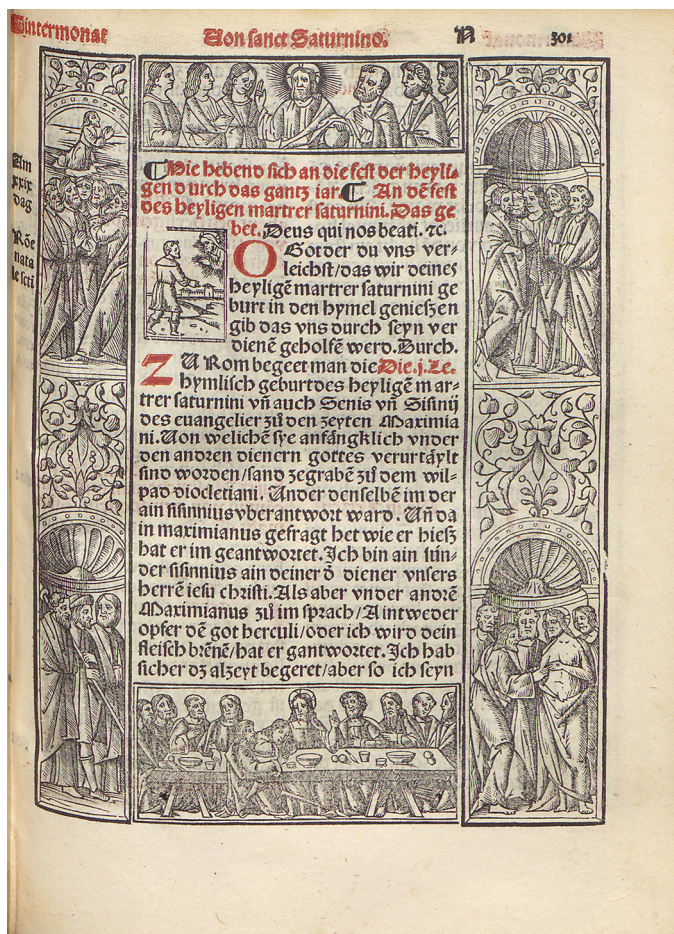 Wintermonat
Von sanct Saturnino.
N
301
Am
xxix
dag
Rōe
nata
le scti
¶Hie hebend sich an die fest der heyli-
gen d urch das gantz iar.¶ An dē fest
des heyligen martrer saturnini. Das ge
bet. Deus qui nos beati. ꝛc.
O Got der du vns ver-
leichst/das wir deines
heyligē martrer saturnini ge
burt in den hymel genieſzen
gib das vns durch seyn ver
dienē geholfē werd. Durch.
ZU Rom begeet man die Die .j. Le.
hymlisch geburt des heyligē m ar-
trer saturnini vñ auch Senis vñ Sisinij
des euangelier zů den zeyten Maximia
ni. Von welichē sye anfängklich vnder
den andren dienern gottes verurtäylt
sind worden/sand zegrabē zů dem wil-
pad diocletiani. Under denselbē im der
ain sisinnius vberantwort ward. Uñ da
in maximianus gefragt het wie er hieſz
hat er im geantwortet. Ich bin ain sün-
der sisinnius ain deiner ð diener vnsers
herrē iesu christi. Als aber vnder andrē
Maximianus zů im sprach/Aintweder
opfer dē got herculi/oder ich wird dein
fleisch brēnē/hat er gantwortet. Ich hab
sicher dz alzeyt begeret/aber so ich seyn